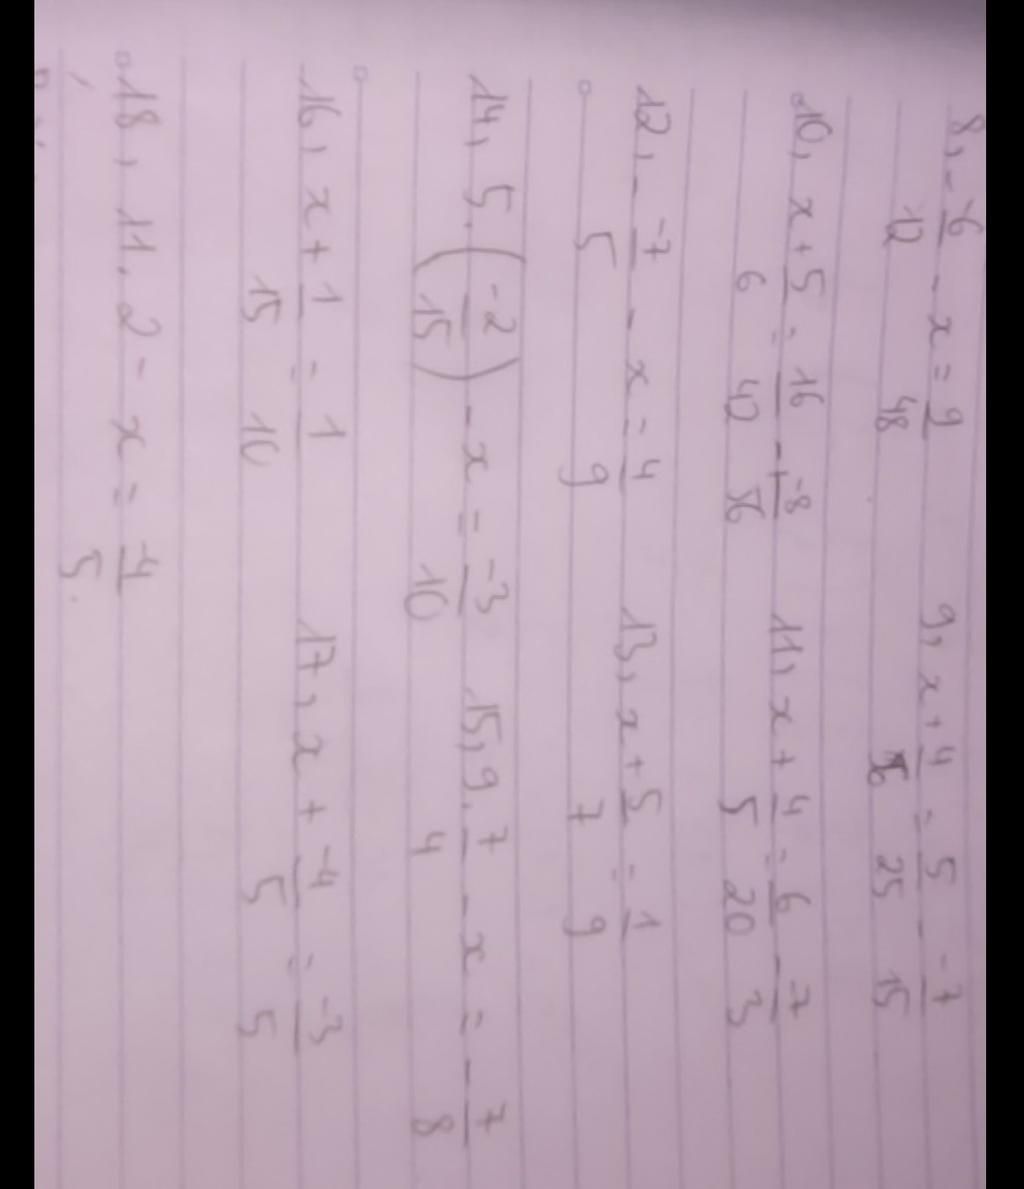 8, - -6/12 - x = 9/48 9, x + 4/ = 5/25 - -7/15
10, x + 5/6 = 16/42 - -8/56 11, x + 4/5 = 6/20 - -7/3
12, - -7/5 - x = 4/9 13, x + 5/7 = 1/9
14, 5. (-2/15) - x = -3/10 15, 9. 7/4 - x = - 7/8
16, x + 1/15 = 1/10 17, x + -4/5 = -3/5
18, 11. 2 - x = -4/5.